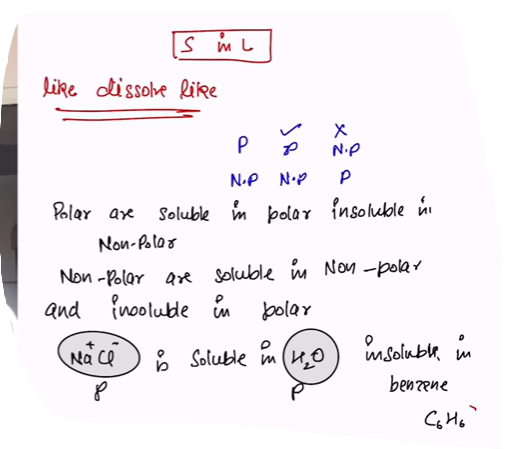 S in L
like dissolve like
✓ X
P P N.P
N.P N.P P
Polar are soluble in polar insoluble in
Non-Polar
Non-Polar are soluble in Non-polar
and insoluble in polar
Na⁺Cl⁻ is soluble in H₂O insoluble in
P P benzene
C₆H₆